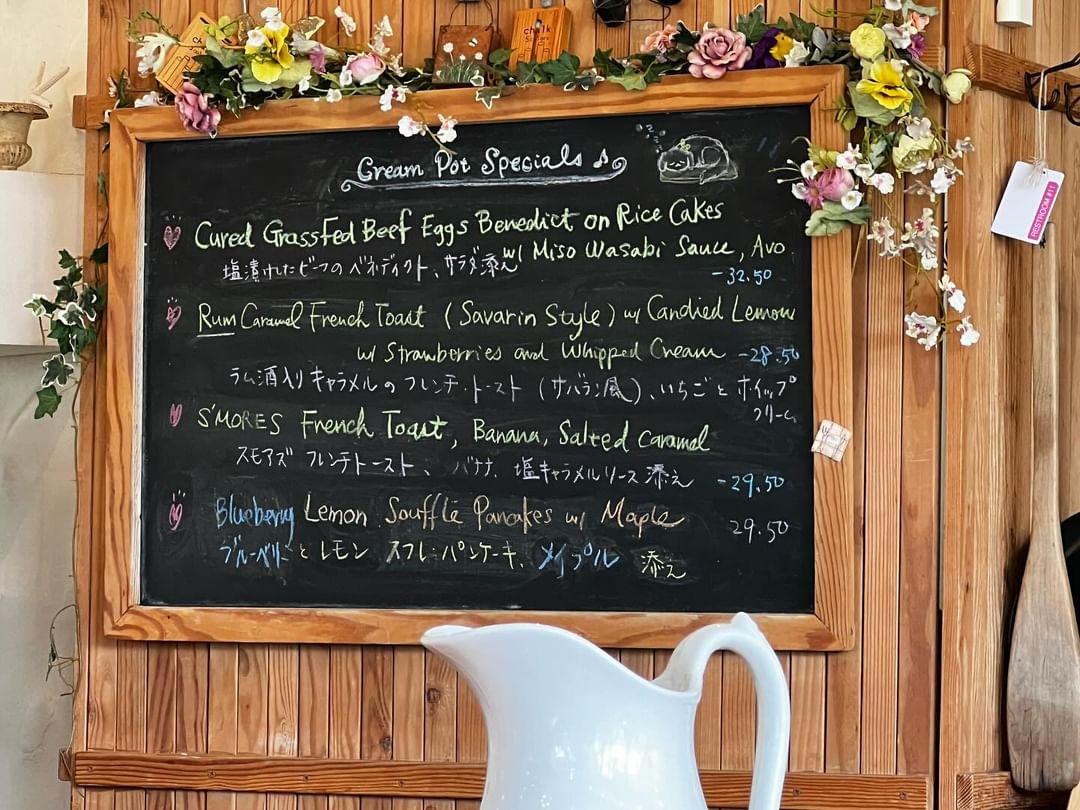 Cream Pot Specials
Cured Grassfed Beef Eggs Benedict on Rice Cakes
w/ Miso Wasabi Sauce, Avo
塩漬けたビーフのベネディクト、サラダ添え
-32.50
Rum Caramel French Toast (Savarin Style) w/ Candied Lemon
w/ Strawberries and Whipped Cream -28.50
ラム酒入りキャラメルのフレンチ・トースト (サバラン風)、いちごとホイップ
クリーム
S'MORES French Toast, Banana, Salted Caramel
スモアズ フレンチトースト、バナナ、塩キャラメルソース添え
-29.50
Blueberry Lemon Soufflé Pancakes w/ Maple 29.50
ブルーベリーとレモン スフレ・パンケーキ、メイプル 添え
RESTROOM #11
chalk